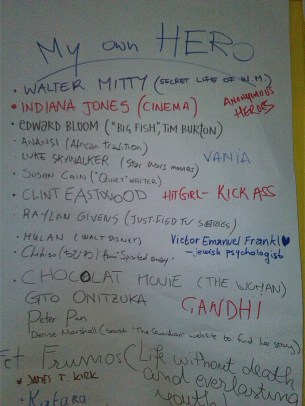 My own HERO
• WALTER MITTY (SECRET LIFE OF W.M.)
• INDIANA JONES (CINEMA)
ANONYMOUS HEROES
• EDWARD BLOOM ("BIG FISH", TIM BURTON)
• ANANSI (African tradition)
• LUKE SKYWALKER (Star Wars movies)
VANIA
• SUSAN CAIN "QUIET" WRITER)
• CLINT EASTWOOD
HITGIRL - KICK ASS
• RAYLAN GIVENS (JUSTIFIED TV SERIES)
• MULAN (WALT DISNEY)
Victor Emanuel Frankl
- jewish psychologist
• Chihiro (ちひろ) from Spirited away.
• CHOCOLAT MOVIE (THE WOMAN)
GTO ONITZUKA
GANDHI
Peter Pan
Denise Marshall (search "The Guardian" website to find her story)
Fet Frumos (Life without death
and everlasting
youth)
• JAMES T. KIRK
• Katara